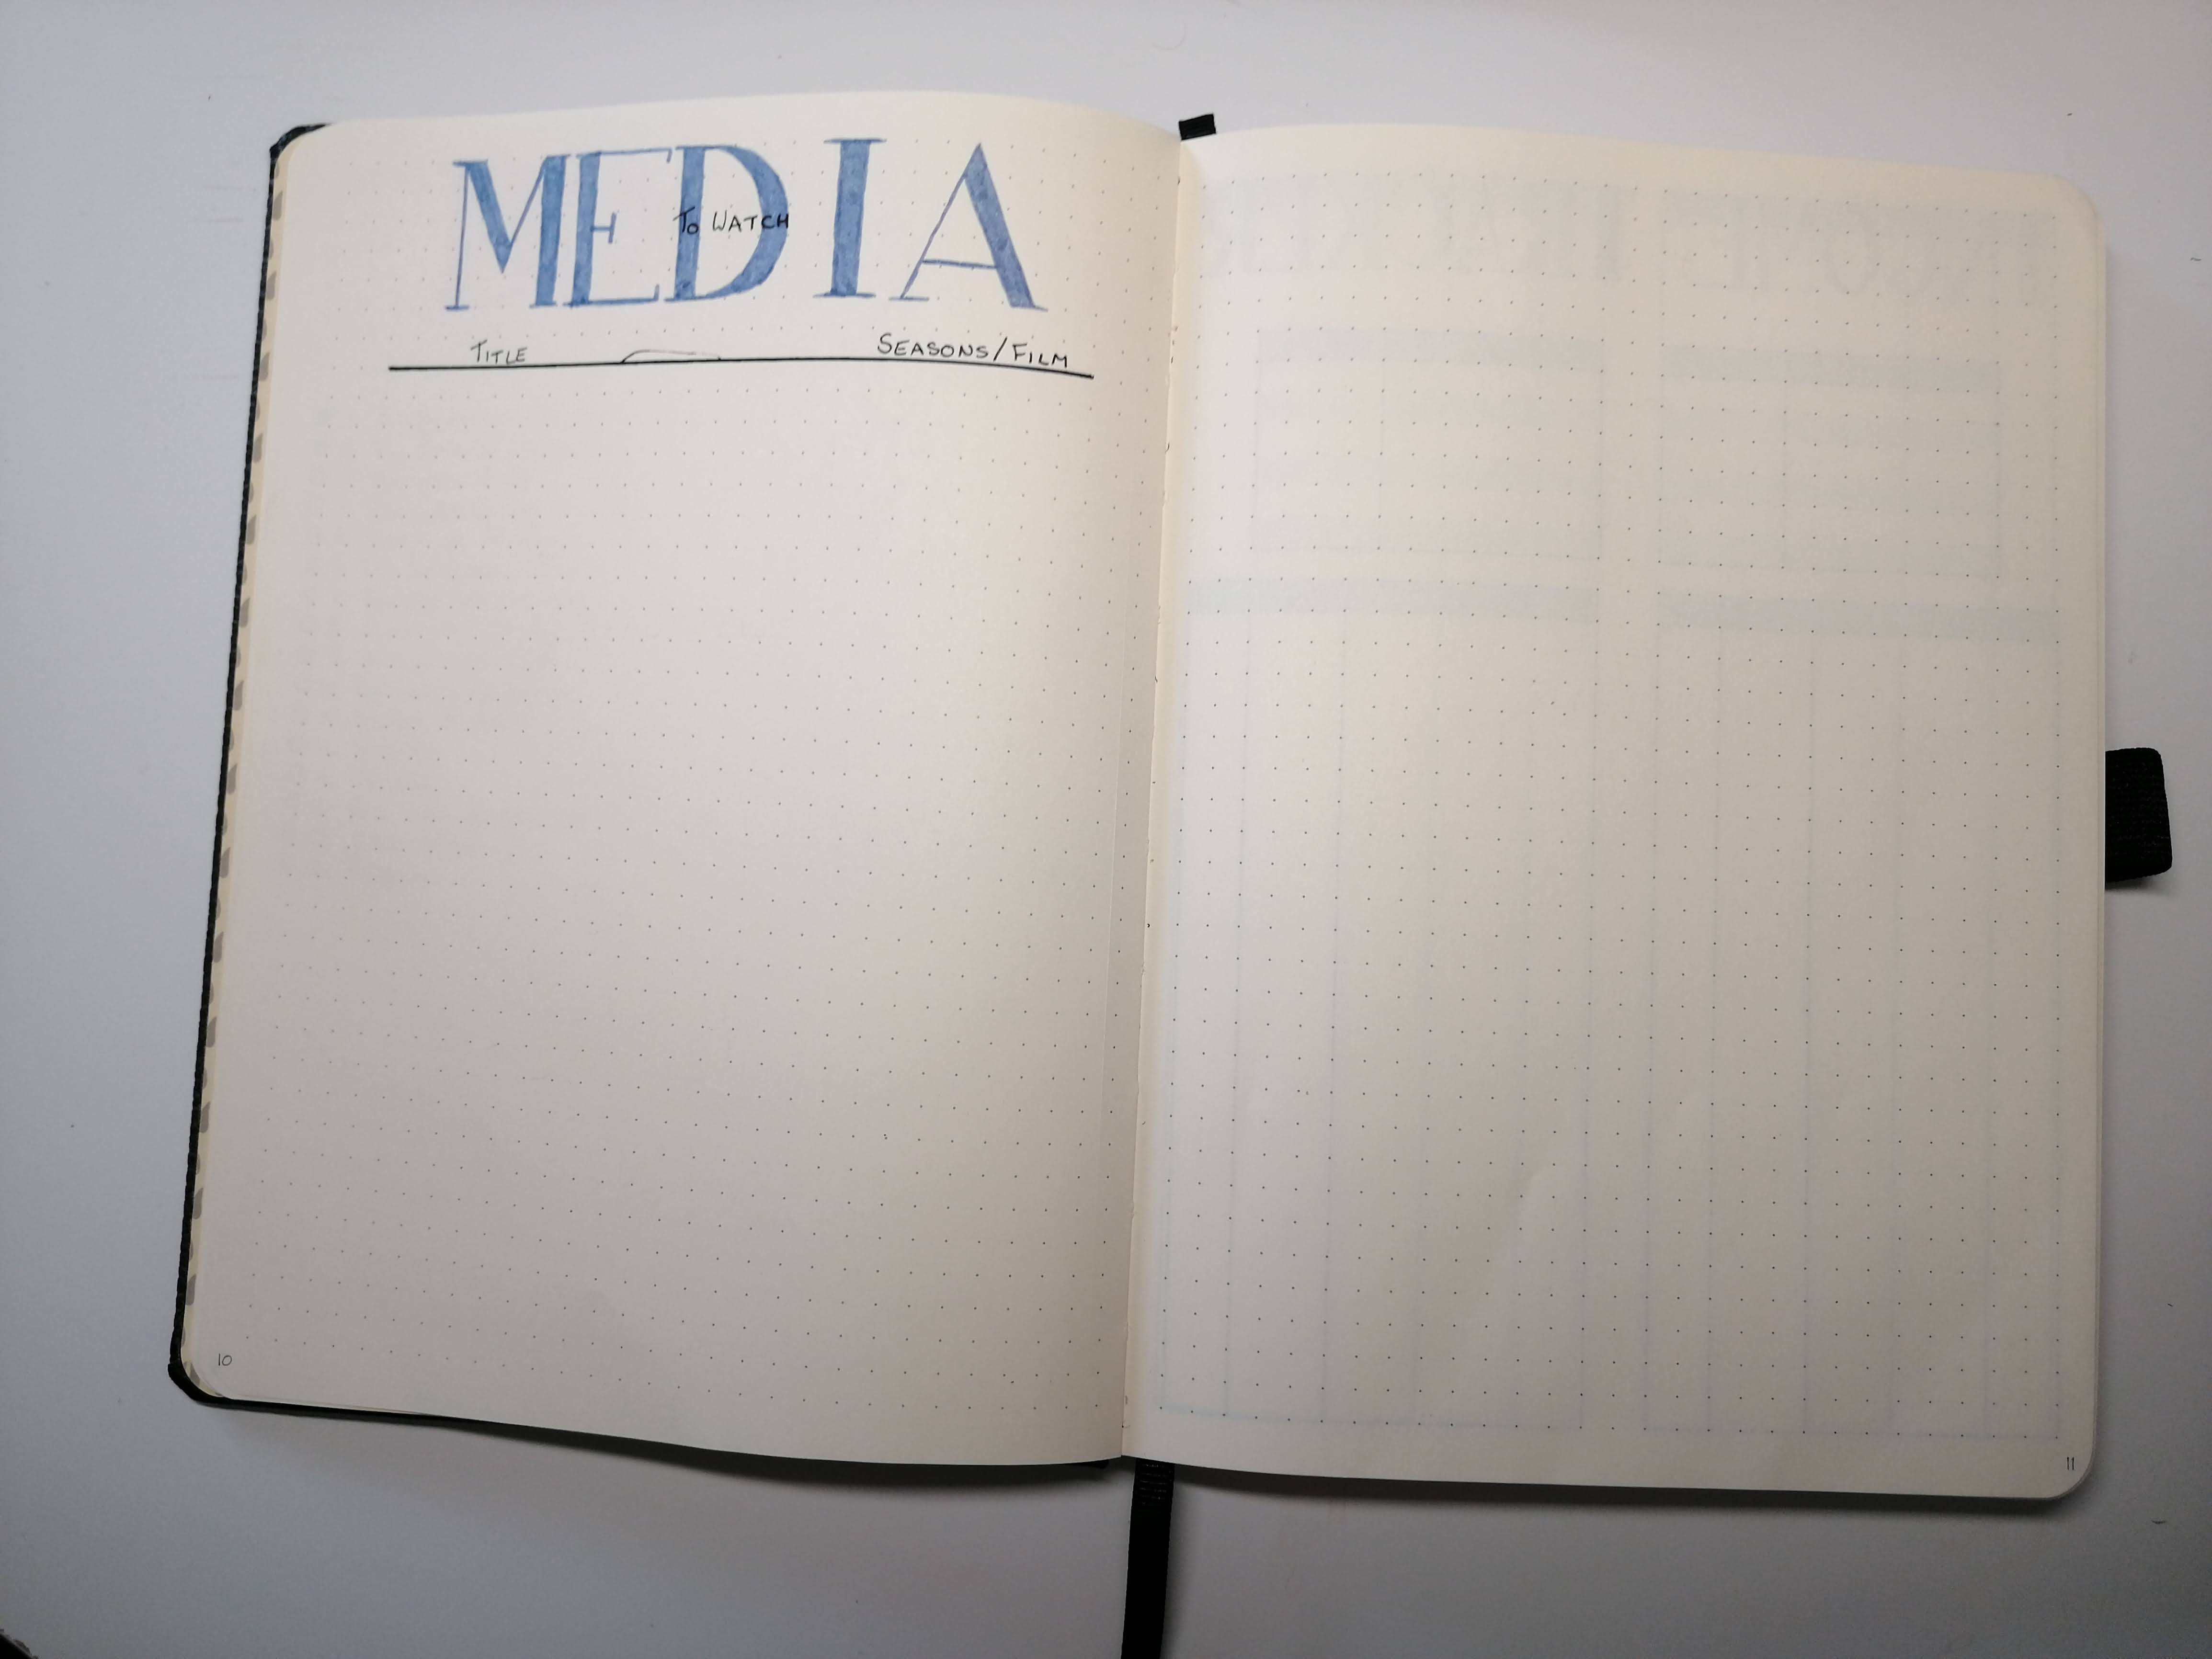 MEDIA
To WATCH
TITLE SEASONS/FILM
10
11